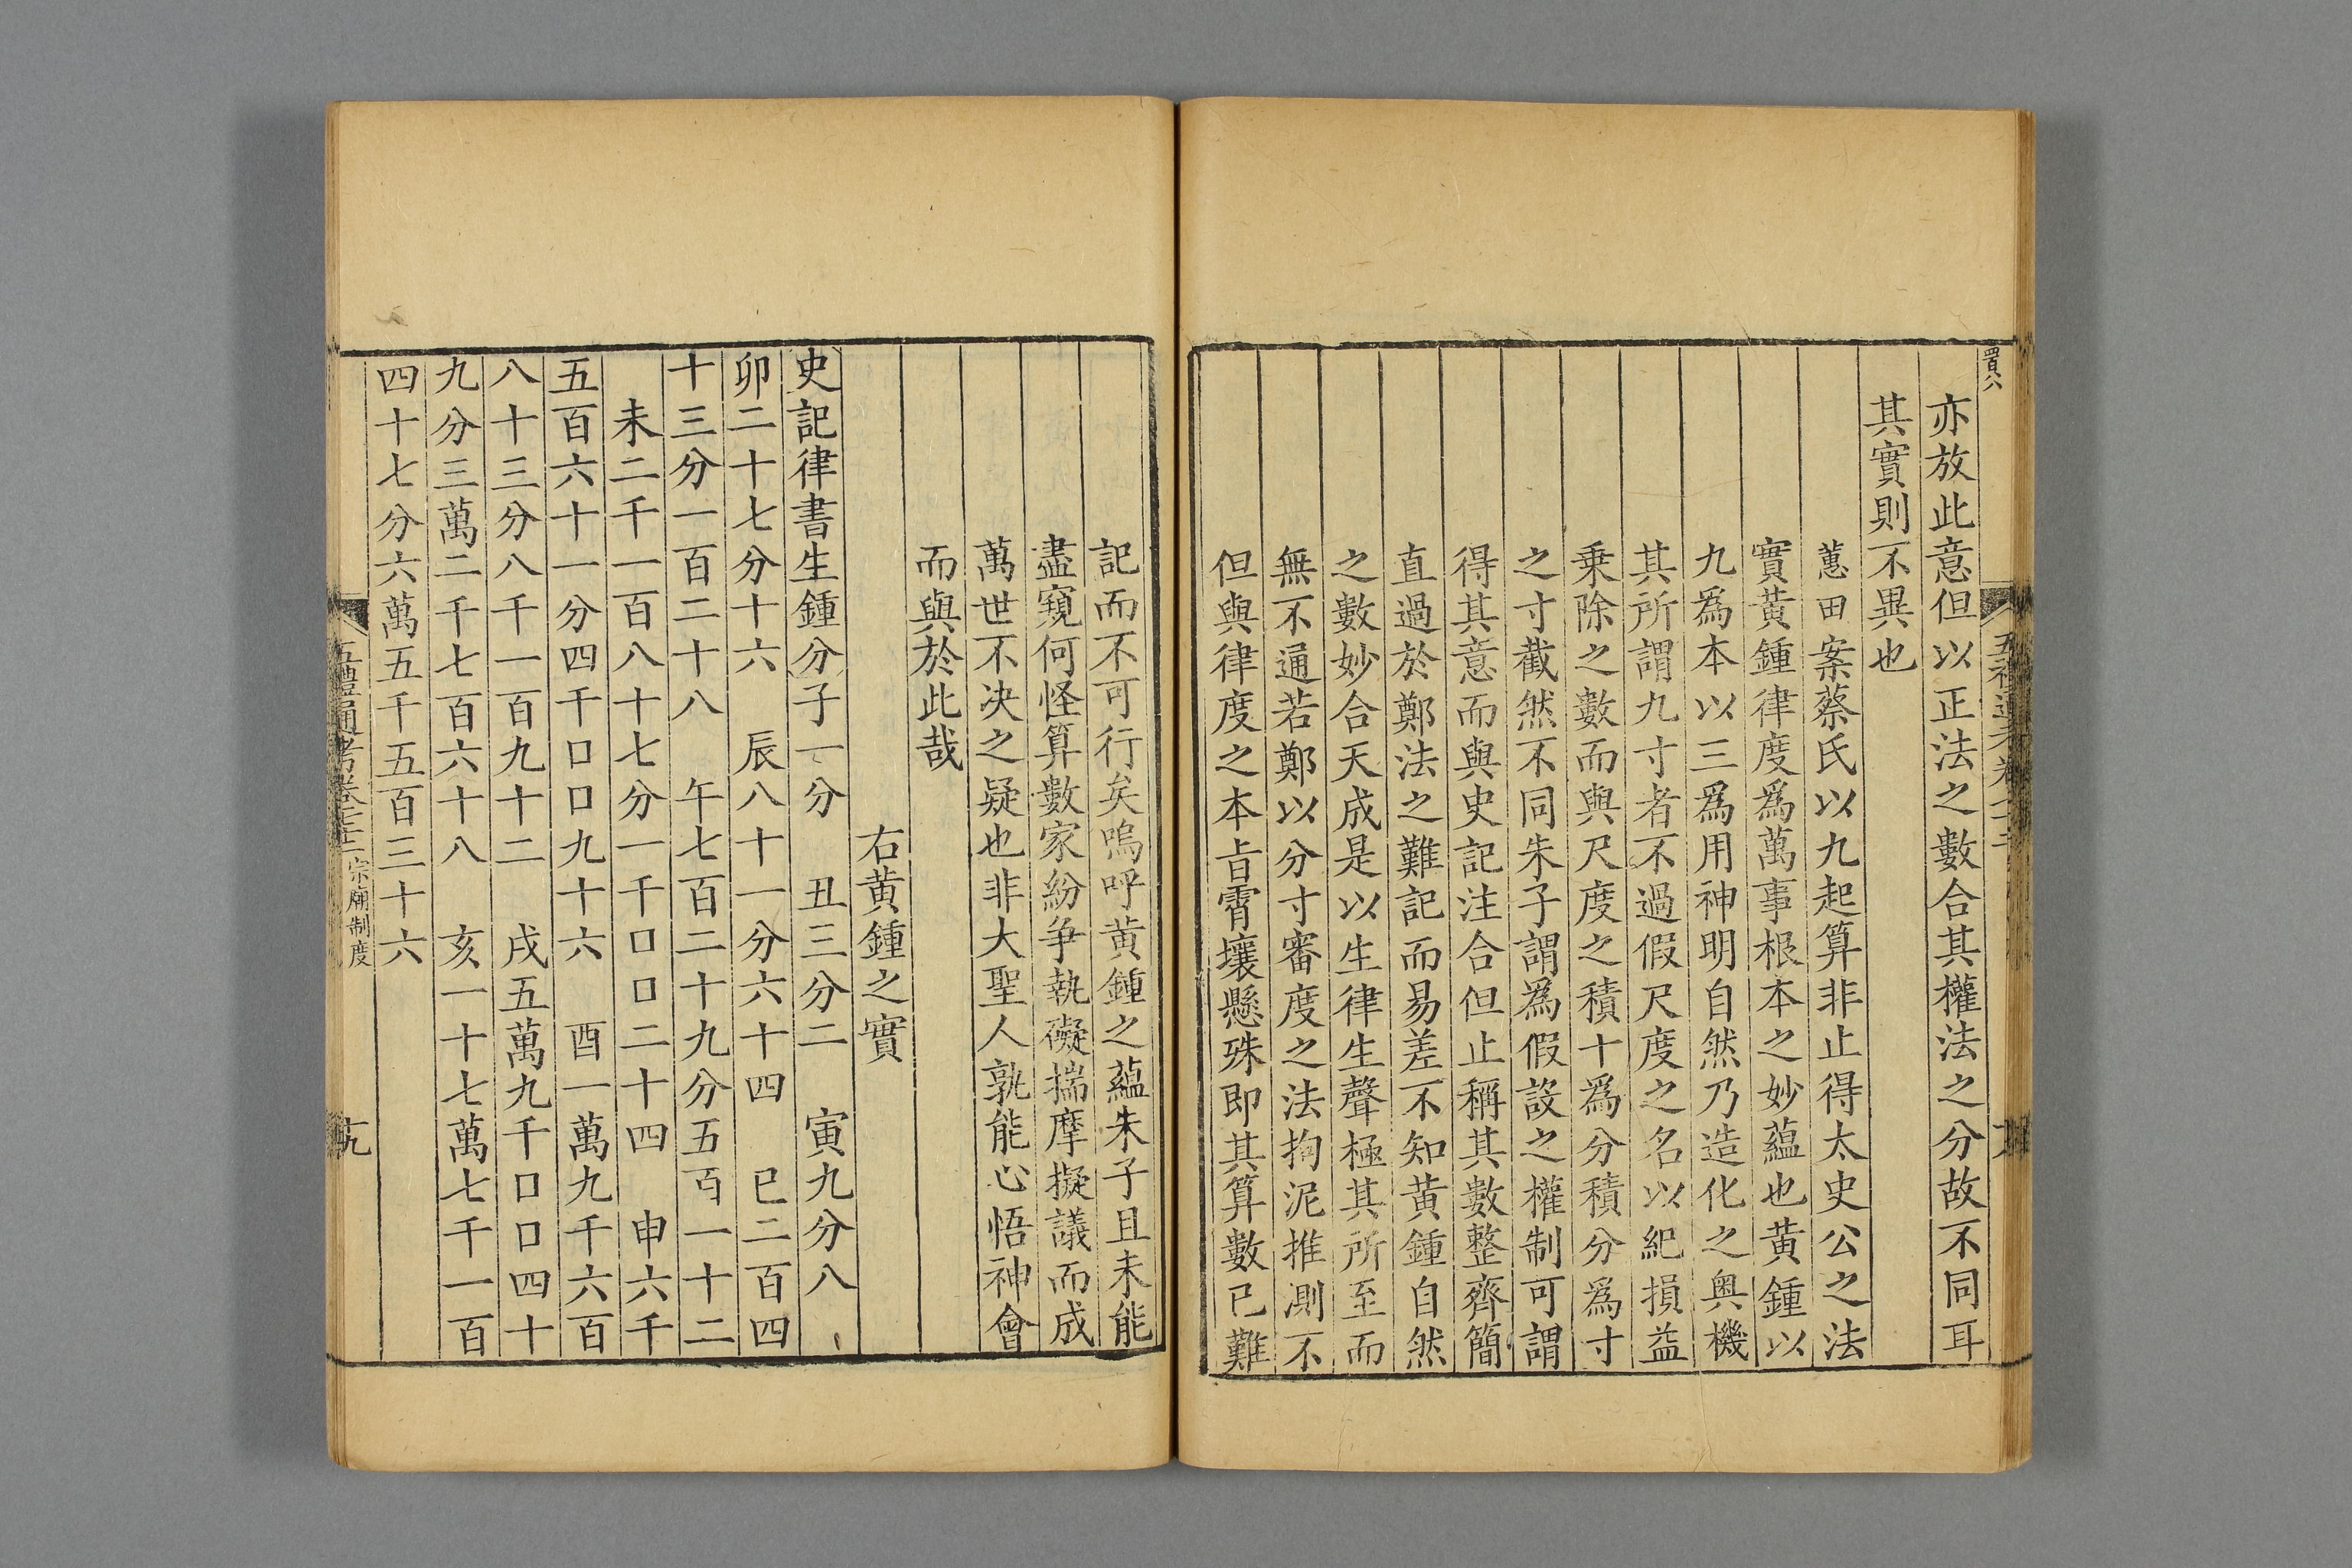 亦放此意但以正法之數合其權法之分故不同耳
其實則不異也
蕙田案蔡氏以九起算非止得太史公之法
實黃鍾律度爲萬事根本之妙蘊也黃鍾以
九爲本以三爲用神明自然乃造化之奥機
其所謂九寸者不過假尺度之名以紀損益
乗除之數而與尺度之積十爲分積分爲寸
之寸截然不同朱子謂爲假設之權制可謂
得其意而與史記注合但止稱其數整齊簡
直過於鄭法之難記而易差不知黃鍾自然
之數妙合天成是以生律生聲極其所至而
無不通若鄭以分寸審度之法拘泥推測不
但與律度之本㫖霄壤懸殊即其算數已難
記而不可行矣嗚呼黃鍾之蘊朱子且未能
盡窺何怪算數家紛爭執礙揣摩擬議而成
萬世不决之疑也非大聖人孰能心悟神會
而與於此哉
右黄鍾之實
史記律書生鍾分子一分　丑三分二　寅九分八
卯二十七分十六　辰八十一分六十四　巳二百四
十三分一百二十八　午七百二十九分五百一十二
未二千一百八十七分一千口口二十四　申六千
五百六十一分四千口口九十六　酉一萬九千六百
八十三分八千一百九十二　戌五萬九千口口四十
九分三萬二千七百六十八　亥一十七萬七千一百
四十七分六萬五千五百三十六
五禮通考卷七十二 宗廟制度
十九